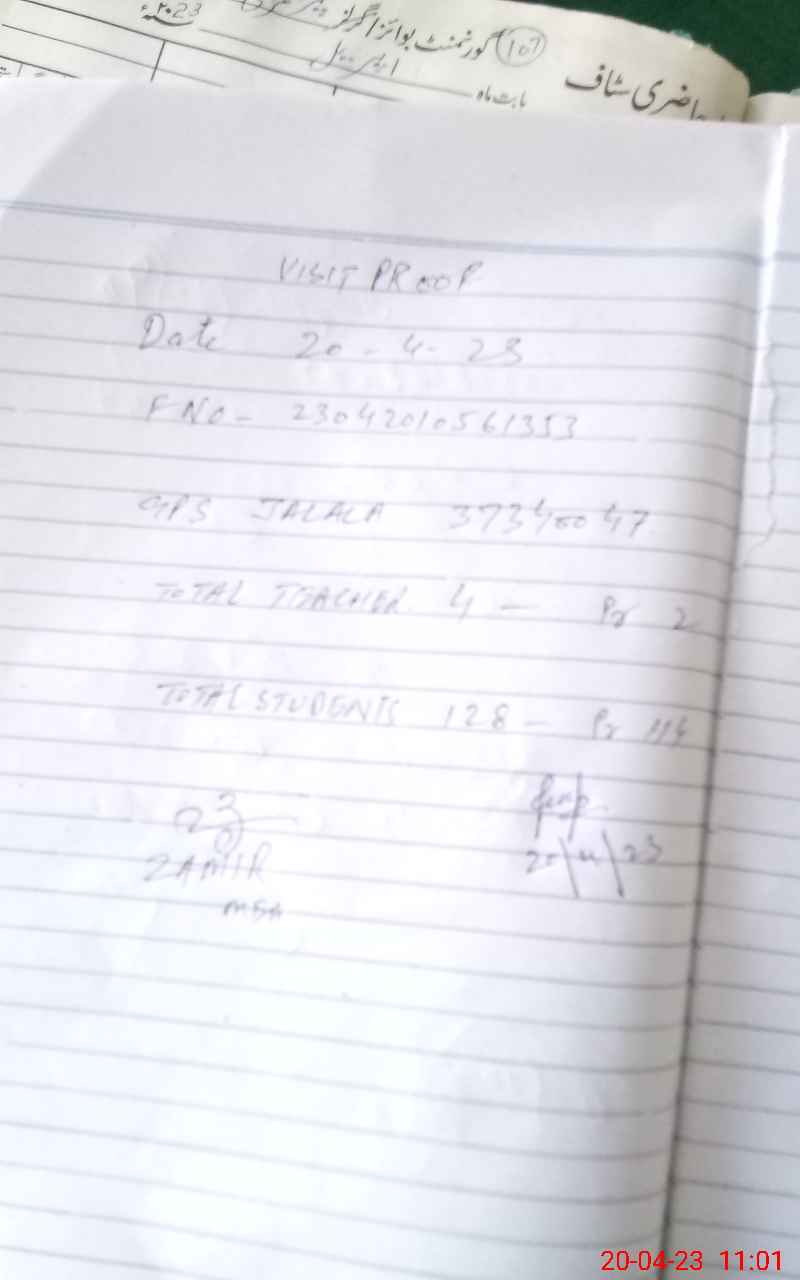 حاضری سٹاف
(107) گورنمنٹ بوائز/گرلز
2023ء
بابت ماہ
VISIT PROOF
Date 20-4-23
F NO- 23042010561353
GPS JALALA 37340047
TOTAL TEACHER 4 — Pr 2
TOTAL STUDENTS 128 — Pr 114
ZAMIR
MEA
20/4/23
20-04-23 11:01